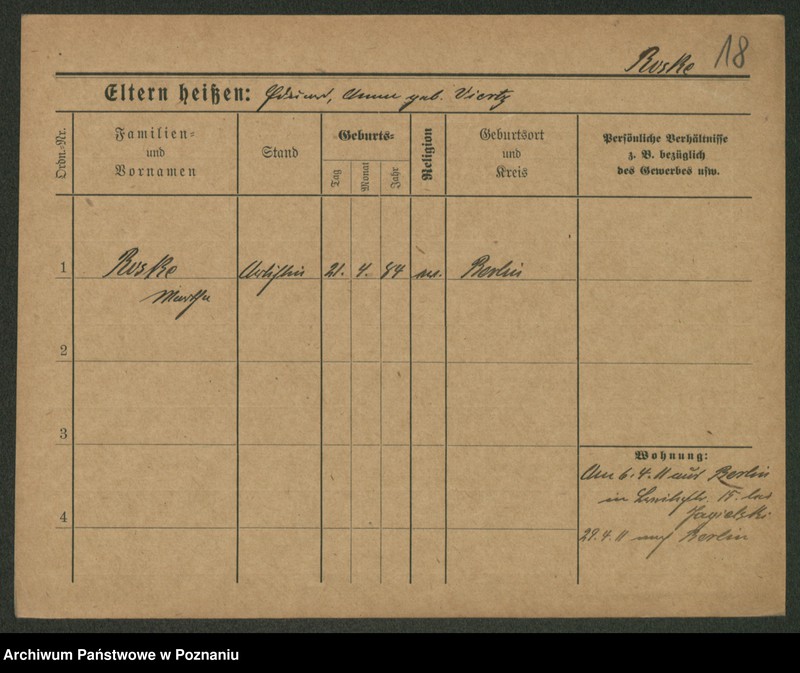 Roske 18
Eltern heißen: Eduard, Anna geb. Viertz
Ordn.-Nr.
Familien-
und
Vornamen
Stand
Geburts-
Tag
Monat
Jahr
Religion
Geburtsort
und
Kreis
Persönliche Verhältnisse
z. B. bezüglich
des Gewerbes usw.
1 Roske Artistin 21. 4. 84 ev. Berlin
Martha
2
3
Wohnung:
Am 6.4.11 aus Berlin
in 15. bei
Jagielski
4
29.4.11 nach Berlin
Archiwum Państwowe w Poznaniu